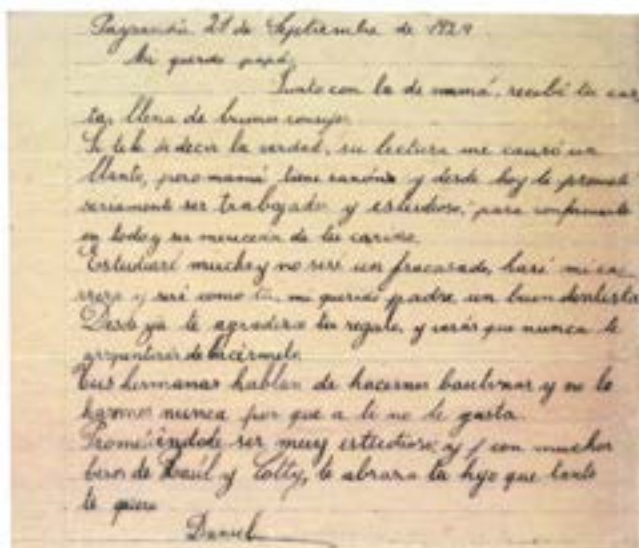 Paysandú 21 de Septiembre de 1929
Mi querido papá:
Junto con la de mamá, recibí tu car
ta, llena de buenos consejos.
Si te he de decir la verdad, su lectura me causó un
llanto, pero mamá tiene razón y desde hoy te prometo
seriamente ser trabajador y estudioso, para conformarte
en todo y ser merecedor de tu cariño.
Estudiaré mucho y no seré un fracasado, haré mi ca
rrera y seré como tú, mi querido padre un buen dentista
Desde ya te agradezco tu regalo, y verás que nunca te
arrepentirás de hacérmelo.
Tus hermanas hablan de hacernos bautizar y no lo
haremos nunca por que a ti no te gusta.
Prometiéndote ser muy estudioso, y con muchos
besos de Raúl y Totty, te abraza tu hijo que tanto
te quiere
Daniel